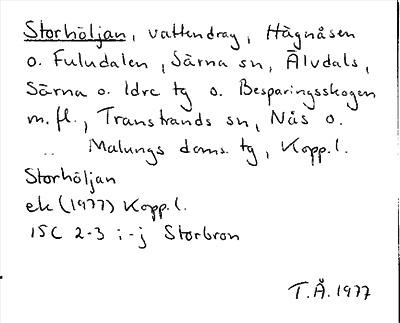 Storhöljan, vattendrag, Hägnåsen
o. Fuludalen, Särna sn, Älvdals,
Särna o. Idre tg o. Besparingsskogen
m.fl., Transtrands sn, Nås o.
Malungs doms. tg, Kopp. l.
Storhöljan
ek (1977) Kopp. l.
15C 2-3 i-j Storbron
T.Å. 1977